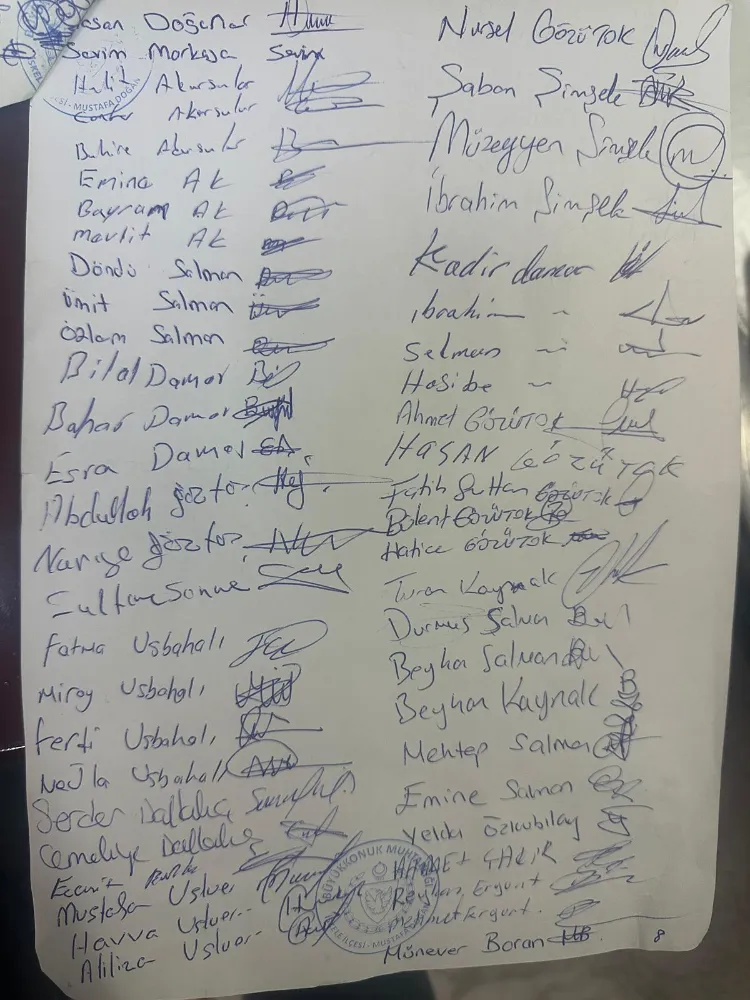 Hasan Doğanar
Sevim Markaşa Sevim
Halit Akarsular
Akarsular
Bahire Akarsular
Emine Ak
Bayram Ak
Mevlit Ak
Döndü Salman
Ümit Salman
Özlem Salman
Bilal Damar
Bahar Damar
Esra Damar
Abdullah
Sultan
Fatma Usbahalı
Miray Usbahalı
Ferdi Usbahalı
Nazla Usbahalı
Serder Dallakıç
Cemaliye Dallakıç
Mustafa Usluer
Havva Usluer
Aliliza Usluer
Nursel Gözütok
Şaban Şimşek
Müzeyyen Şimşek
İbrahim Şimşek
Kadir damar
ibrahim "
Selman "
Hasibe "
Ahmet Gözütok
HASAN GÖZÜTOK
Fatih Sultan Gözütok
Bülent Gözütok
Hatice Gözütok
Turan Kaynak
Durmuş Salman
Beyhan Salman
Beyhan Kaynak
Mehtap Salman
Emine Salman
Yelda Özkubilay
Reyhan Ergent
Mehmet Ergent
Münever Boran
8
BÜYÜKKONUK
MUSTAFA DOĞAN